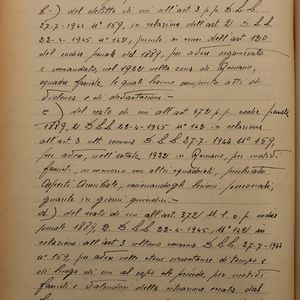 b-) del delitto di cui all'art 3 p.p. D.L.L.
27-7-1944 nº 159, in relazione dell'art. 2 D.L.L
22-4-1945 nº 142, punito ai sensi dell'art 120
del codice penale del 1889, per avere organizzato
e comandato, nel 1922 nella zona di Romano,
squadre fasciste, le quali hanno compiuto atti di
violenza e di devastazione.-
c-) del reato di cui all'art 372 p.p. codice penale
1889, 2 D.L.L 22-4-1945 nº 142 in relazione
all'art 3 ult comma D.L.L 27-7-1944 nº 159,
per avere, nell'estate 1922 in Romano, per motivi
fascisti, in unione con altri squadristi, picchiato
Annibale, cagionandogli lesioni personali,
guarite in giorni quindici.-
d-) del reato di cui all'art 372/ nº 1. c.p. codice
penale 1889, 2 D.L.L. 22-4-1945, nº 142/ in
relazione all'art 3 ultimo comma D.L.L 27-7-1944
nº 159, per avere nelle stesse circostanze di tempo e
di luogo di cui al capo che precede, per motivi
fascisti e valendosi della situazione creata dal